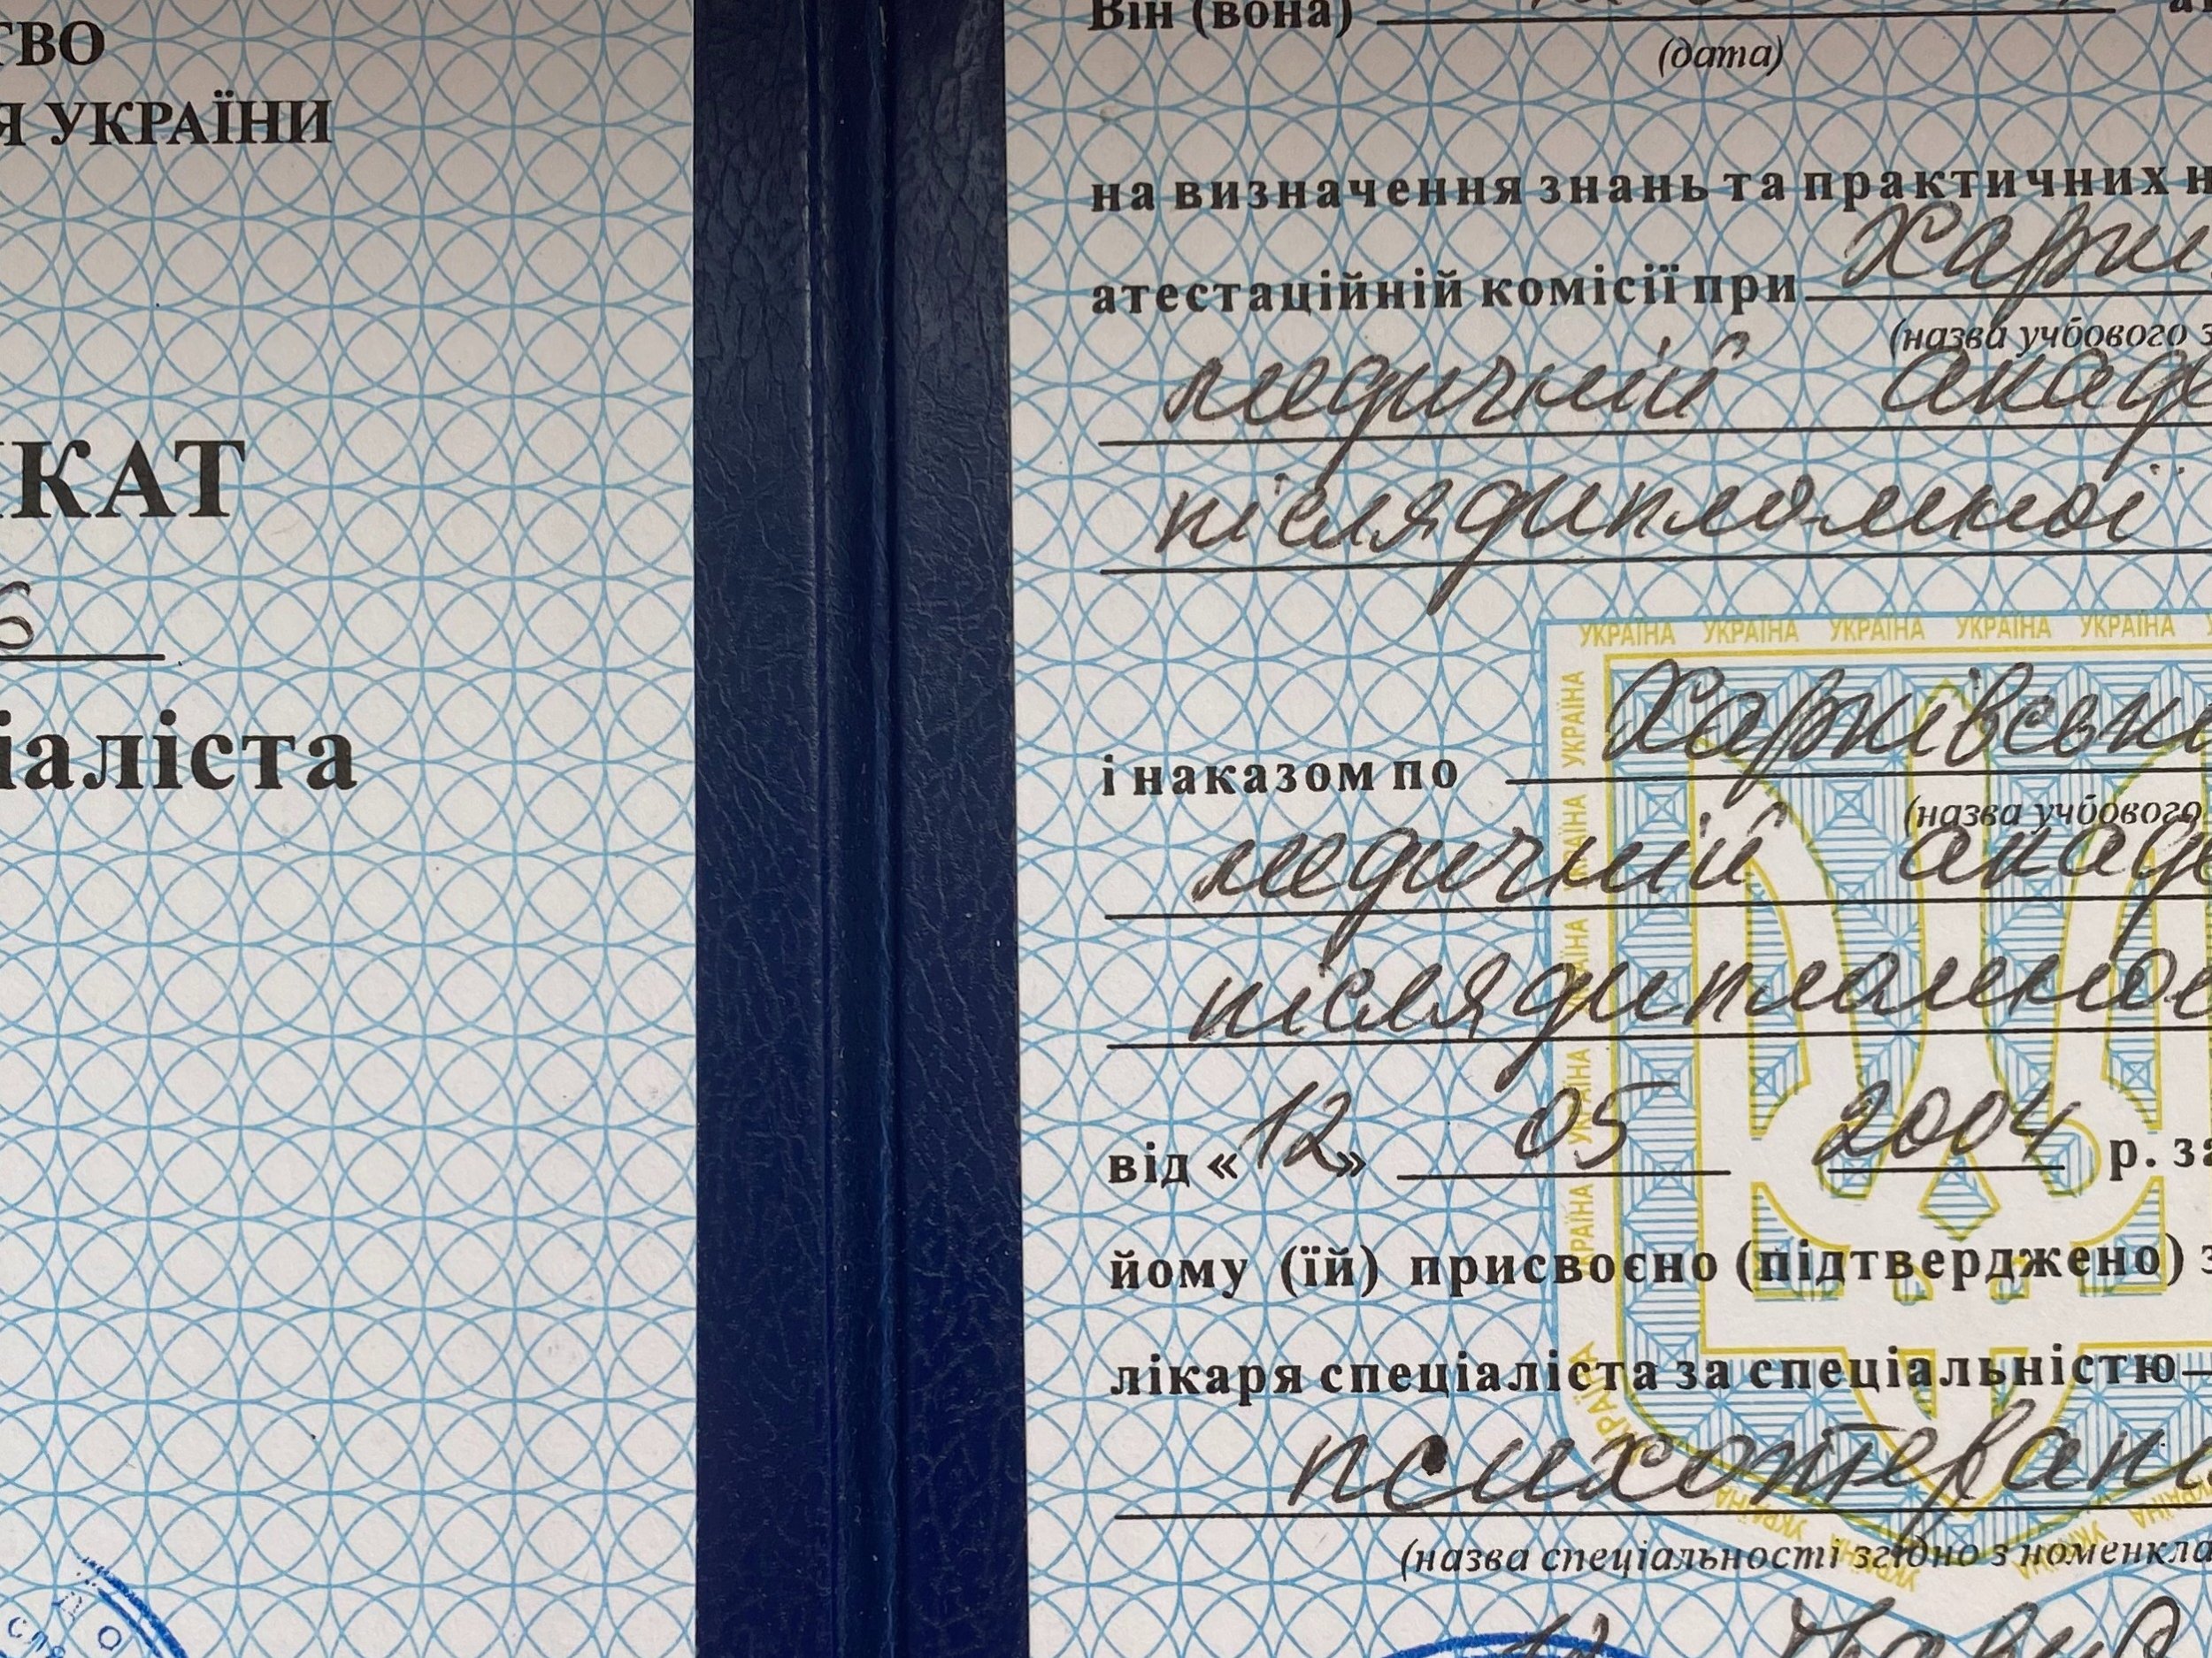 ТВО
Я УКРАЇНИ
ІКАТ
6
іаліста
Він (вона)
(дата)
на визначення знань та практичних н
атестаційній комісії при Харкі
(назва учбового з
медичній акаде
післядипломної
УКРАЇНА УКРАЇНА УКРАЇНА УКРАЇНА УКРАЇНА
і наказом по Харківські
(назва учбового
медичній акаде
післядипломної
від «12» 05 2004 р. за
йому (їй) присвоєно (підтверджено) з
лікаря спеціаліста за спеціальністю
психотерапі
(назва спеціальності згідно з номенкла
12 травня